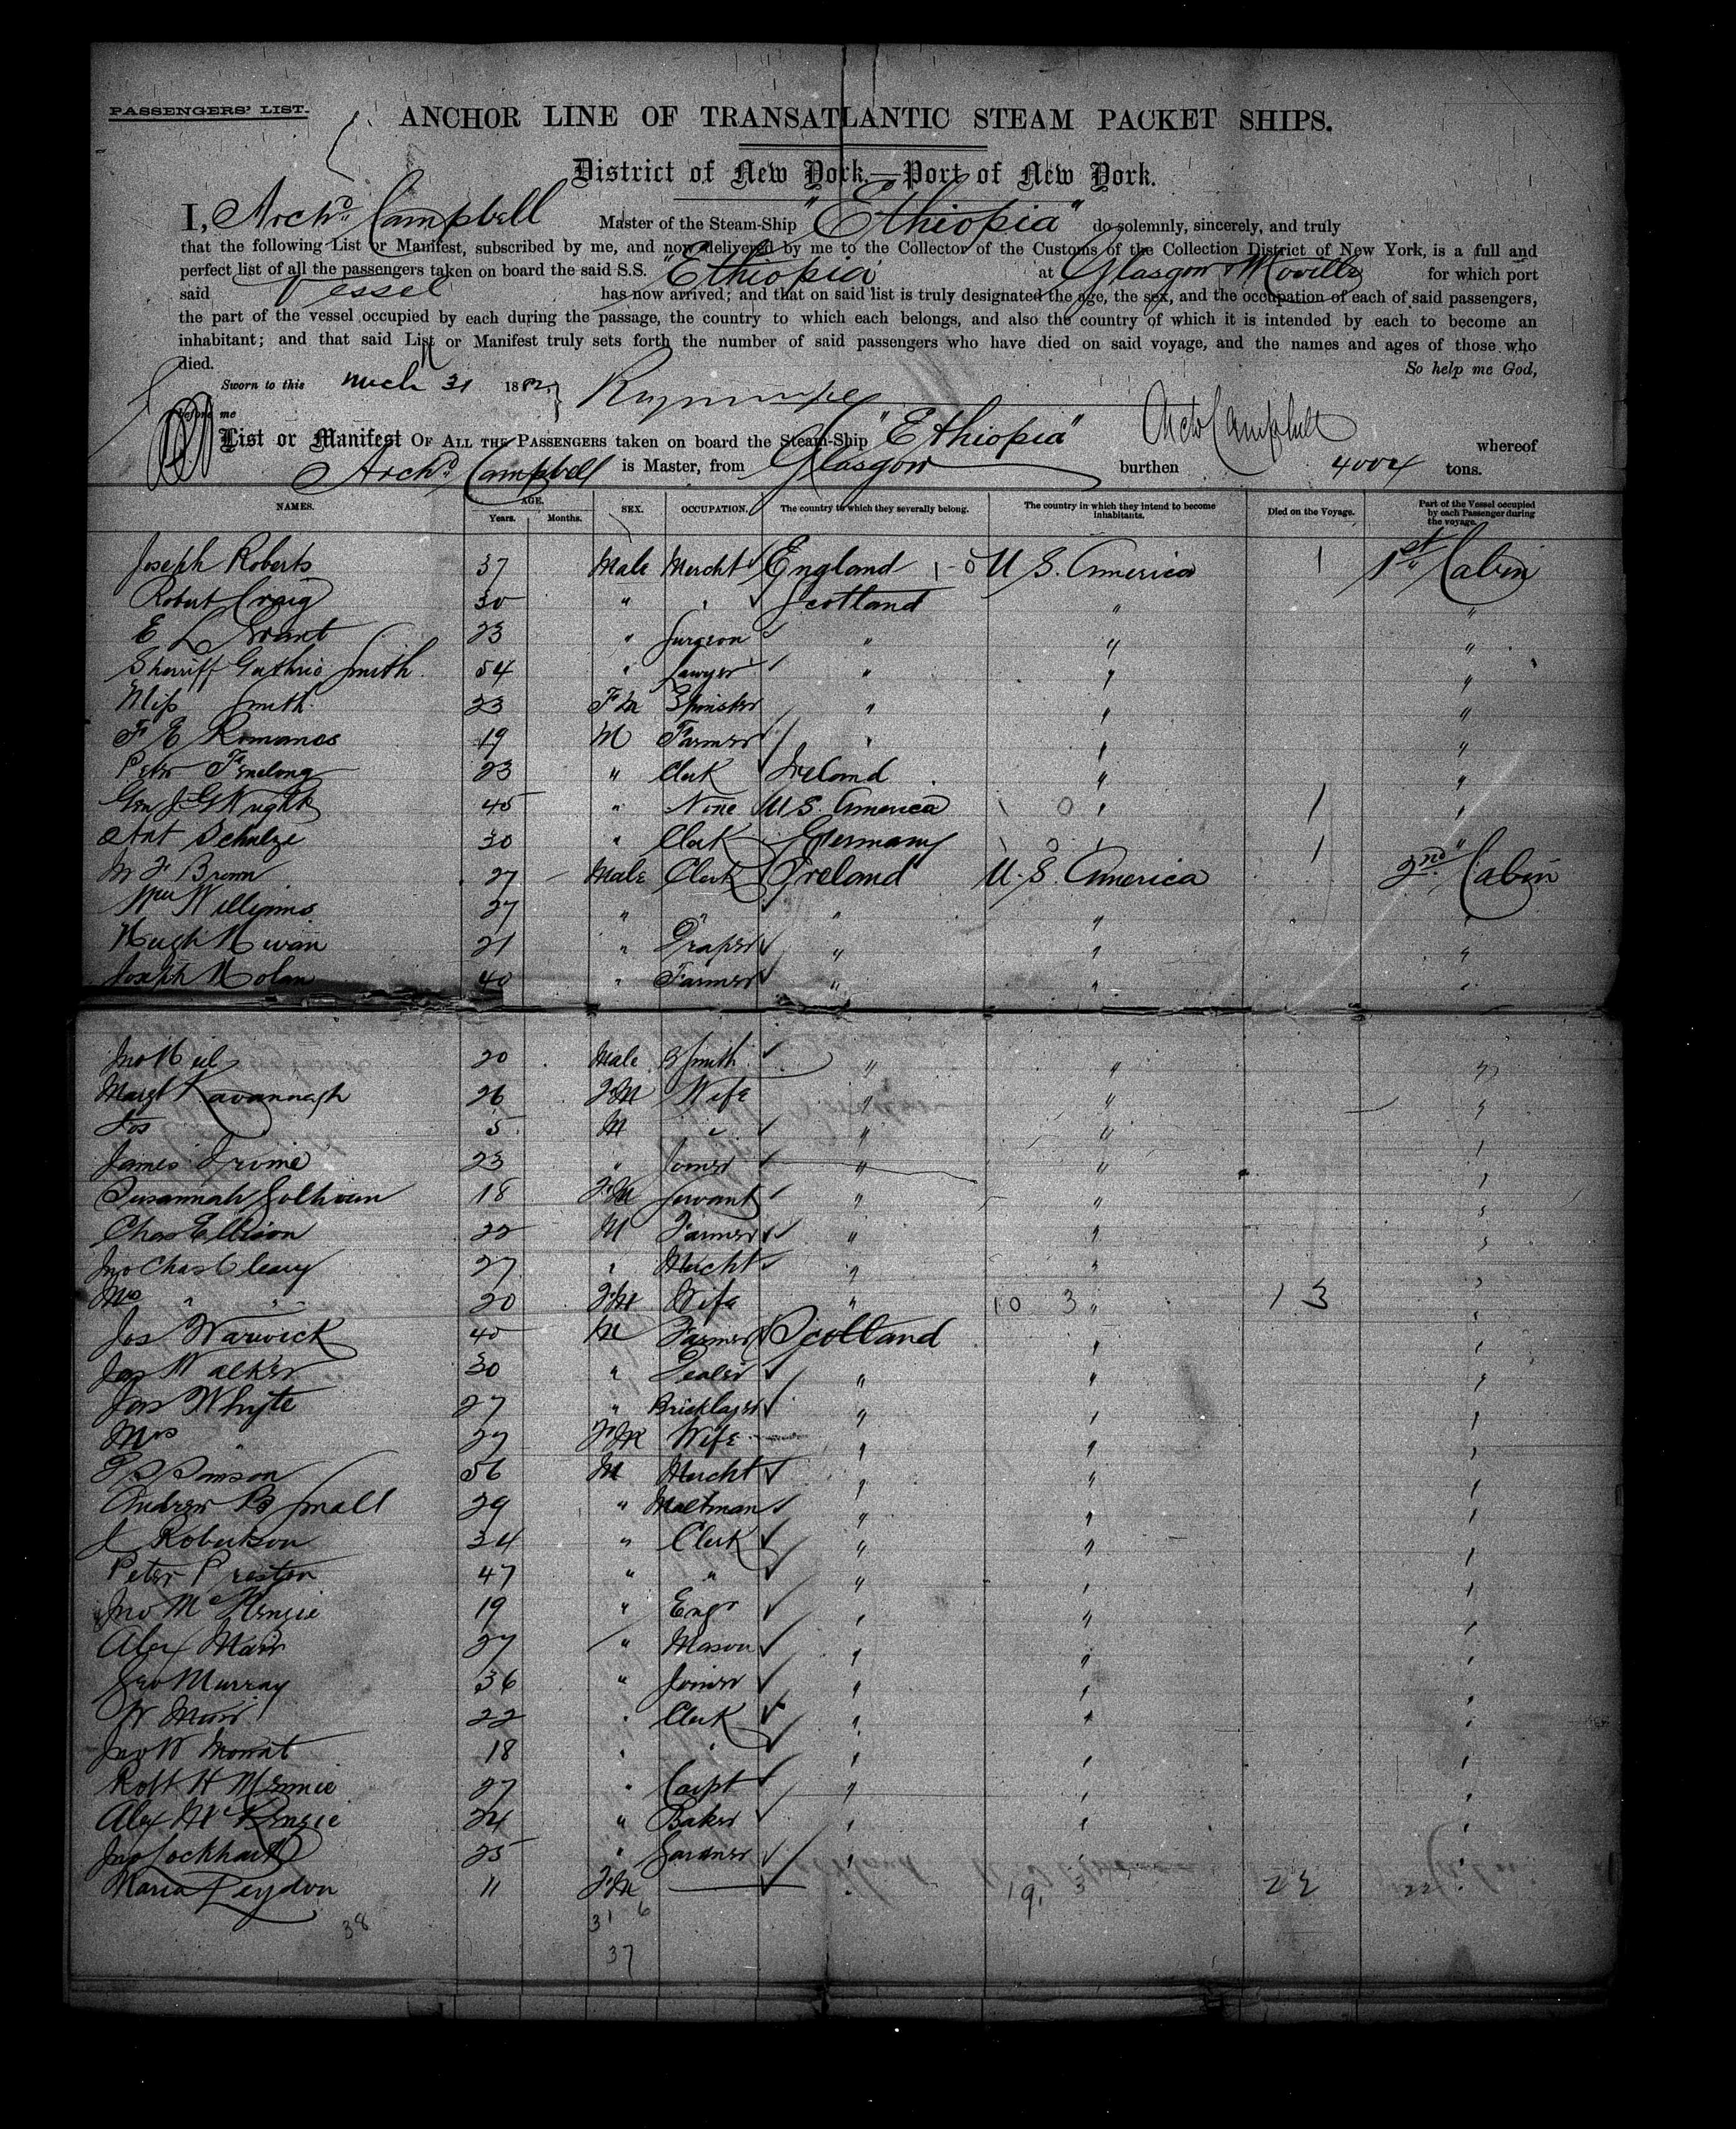 PASSENGERS' LIST.
ANCHOR LINE OF TRANSATLANTIC STEAM PACKET SHIPS.
District of New York.—Port of New York.
I, Archd. Campbell Master of the Steam-Ship "Ethiopia" do solemnly, sincerely, and truly
that the following List or Manifest, subscribed by me, and now delivered by me to the Collector of the Customs of the Collection District of New York, is a full and
perfect list of all the passengers taken on board the said S.S. "Ethiopia" at Glasgow & Moville for which port
said Vessel has now arrived; and that on said list is truly designated the age, the sex, and the occupation of each of said passengers,
the part of the vessel occupied by each during the passage, the country to which each belongs, and also the country of which it is intended by each to become an
inhabitant; and that said List or Manifest truly sets forth the number of said passengers who have died on said voyage, and the names and ages of those who
died. So help me God,
Sworn to this March 31 1882
before me
Archd Campbell
List or Manifest OF ALL THE PASSENGERS taken on board the Steam-Ship "Ethiopia" whereof
Archd. Campbell is Master, from Glasgow burthen 4004 tons.
NAMES. AGE. Years. Months. SEX. OCCUPATION. The country to which they severally belong. The country in which they intend to become inhabitants. Died on the Voyage. Part of the Vessel occupied by each Passenger during the voyage.
Joseph Roberts 37 Male Mercht England 1 - 0 U S. America 1 1st Cabin
Robert Craig 30 " " Scotland " "
E L Grant 23 " Surgeon " " "
Sherriff Guthrie Smith 54 " Lawyer " " "
Miss Smith 23 FM Spinster " " "
F E Romanes 19 M Farmer " " "
Peter Fenelong 23 " Clerk Ireland " "
Gen J G Wright 45 " None U S. America 1 0 " 1 "
Ant Schulze 30 " Clerk Germany 1 0 " 1 "
Brown 27 Male Clerk Ireland U.S. America 2nd Cabin
Wm Williams 27 " " " " "
Hugh 21 " Draper " " "
Joseph Nolan 40 " Farmer " " "
Jno Neil 20 Male B Smith " " "
Margt Kavannagh 26 FM Wife " " "
Jos 5 M " " " "
James Irvine 23 " Joiner " " "
Susannah Colhoun 18 FM Servant " " "
Chas Ellison 22 M Farmer " " "
Jno Chas Cleary 27 " Mercht " " "
Mrs " " 20 FM Wife " 10 3 " 1 3 "
Jas Warwick 40 M Farmer Scotland " "
Jas Walker 30 " Dealer " " "
Jas Whyte 27 " Bricklayer " " "
Mrs " 27 FM Wife " " "
56 M Mercht " " "
Andrew B Small 29 " Maltman " " "
J Robertson 34 " Clerk " " "
Peter Preston 47 " " " " "
Jno McKenzie 19 " Engr " " "
Alex Marr 27 " Mason " " "
Geo Murray 36 " Joiner " " "
W Marr 22 " Clerk " " "
Jno W Mowat 18 " " " " "
Robt H 27 " Carpt " " "
Alex McKenzie 24 " Baker " " "
Jno Lockhart 25 " Gardner " "
Maria Leydon 11 FM " 19 3 22 22 "
38 31 6
37